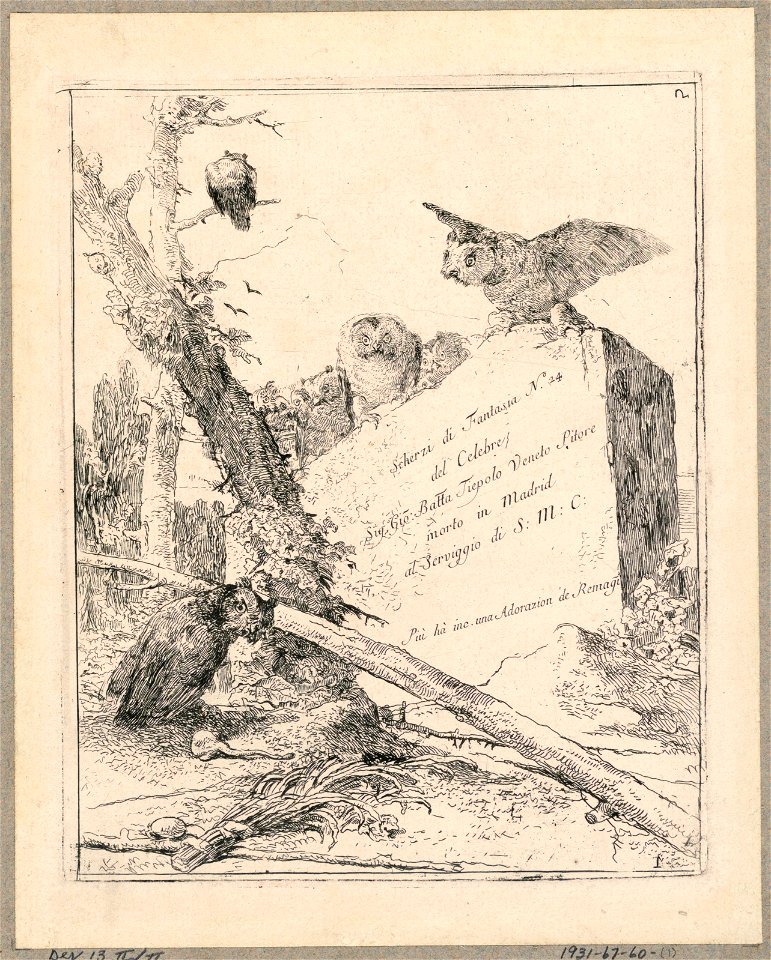 2
Scherzi di Fantasia N.º 24
del Celebre
Sig. Gio. Batta Tiepolo Veneto Pitore
morto in Madrid
al Serviggio di S: M: C:
Più hà inc. una Adorazion de Remagi
1
1931-67-60-(1)